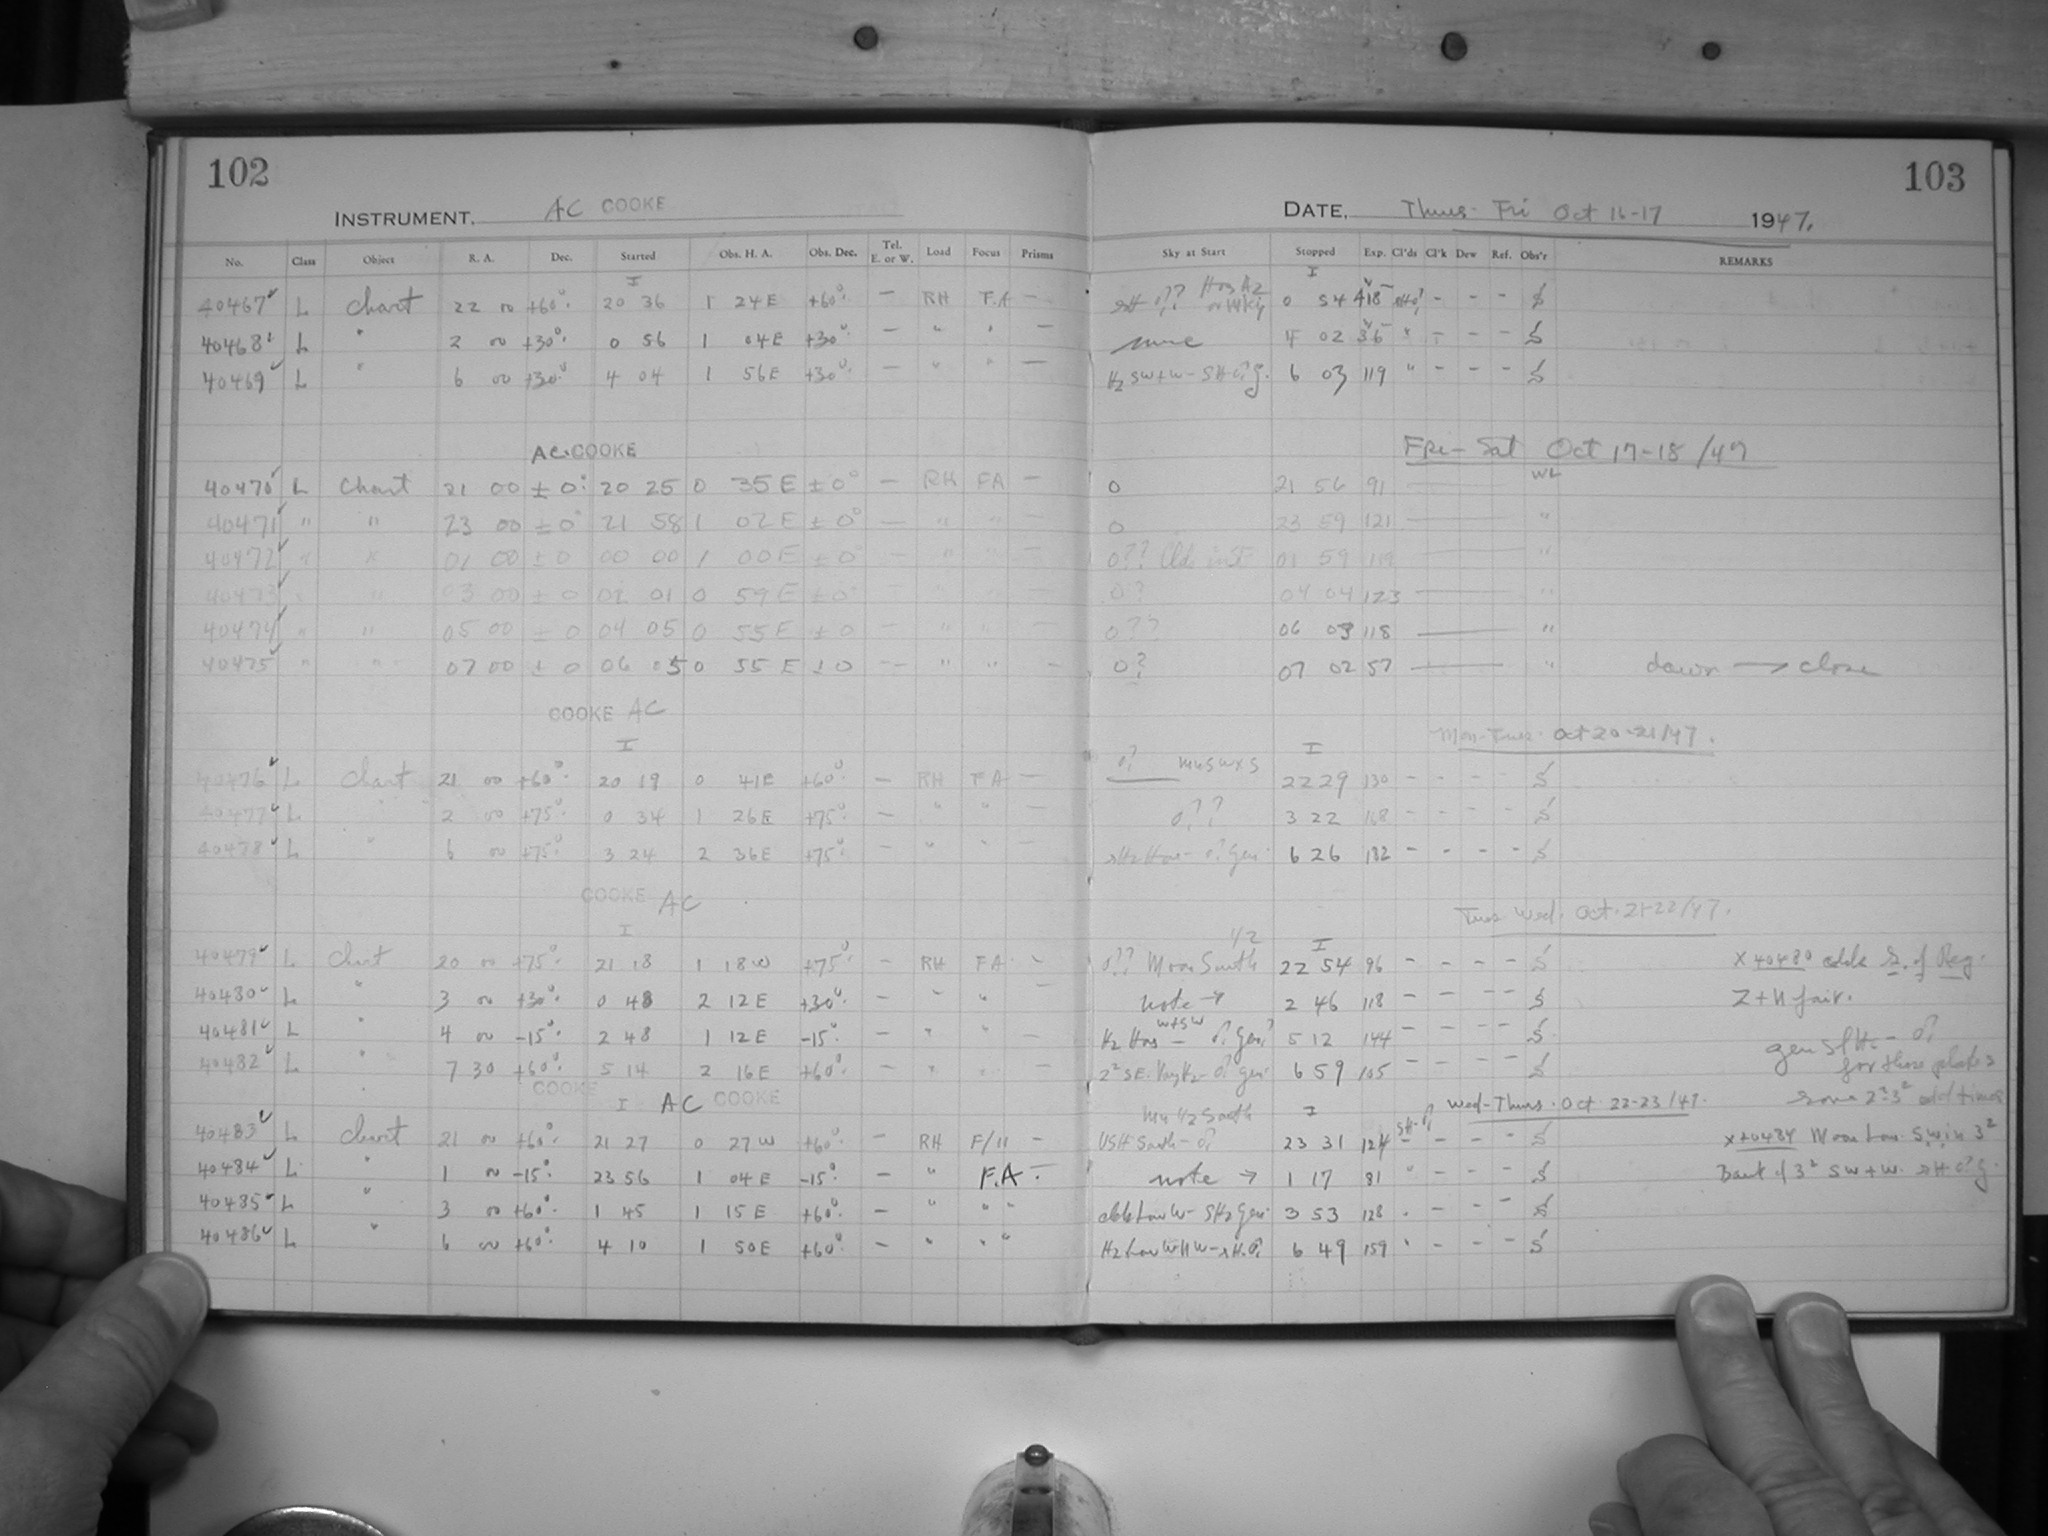 102
103
INSTRUMENT. AC COOKE
DATE, Thurs - Fri Oct 16-17 1947.
No. Class Object R. A. Dec. Started Obs. H. A. Obs. Dec. Tel. E. or W. Load Focus Prisms Sky at Start Stopped Exp. Cl'ds Cl'k Dew Ref. Obs'r REMARKS
I I
40467 L Chart 22 00 +60°: 20 36 1 24E +60°: — RH F.A — 0 54 - - -
40468 L " 2 00 +30°: 0 56 1 04E +30°: — " " — same 4 02 - - - -
40469 L " 6 00 +30°: 4 04 1 56E +30°: — " " — H2 SW+W - SH 0? g. 6 03 119 " - - -
AC COOKE Fri - Sat Oct 17-18/47
40470 L Chart 21 00 ± 0: 20 25 0 35 E ± 0° — RH FA — 0 21 56 91 —— WL
40471 " " 23 00 ± 0° 21 58 1 02 E ± 0° — " " — 0 23 59 121 —— "
40472 " " 01 00 ± 0 00 00 1 00E ± 0° — " " — 0?? Clds in SE 01 59 119 —— "
40473 " " 03 00 ± 0 02 01 0 59 E ± 0° — " " — 0? 04 04 123 —— "
40474 " " 05 00 ± 0 04 05 0 55 E ± 0 — " " — 0?? 06 03 118 —— "
40475 " " 07 00 ± 0 06 05 0 55 E ± 0 — " " — 0? 07 02 57 —— " dawn → close
COOKE AC Mon-Tues. Oct 20-21/47.
I I
40476 L Chart 21 00 +60°: 20 19 0 41E +60°: — RH FA — 0? 22 29 130 - - - -
40477 L 2 00 +75°: 0 34 1 26E +75°: — " " — 0?? 3 22 168 - - - -
40478 L " 6 00 +75°: 3 24 2 36E +75°: — " " — 0? Gen. 6 26 182 - - - -
COOKE AC Tues Wed. Oct. 21-22/47.
I 1/2 I
40479 L Chart 20 00 +75°: 21 18 1 18W +75°: — RH FA - 0?? Moon South 22 54 96 - - - - X 40480 of Reg.
40480 L " 3 00 +30°: 0 48 2 12E +30°: — " " note → 2 46 118 - - - - Z + N fair.
40481 L " 4 00 -15°: 2 48 1 12E -15°: — " " — H2 W+SW 0? Gen? 5 12 144 - - - -
40482 L " 7 30 +60°: 5 14 2 16E +60°: — " - — 0? gen. 6 59 105 - - - - gen 0? for these plates
COOKE AC COOKE Wed-Thurs. Oct 22-23/47.
I 1/2 South I
40483 L Chart 21 00 +60°: 21 27 0 27W +60°: — RH F/11 — South - 0? 23 31 124 - - - - X 40484 Moon Low SW in 3²
40484 L " 1 00 -15°: 23 56 1 04E -15°: — " F.A — note → 1 17 81 " - - - Bank of 3² SW + W.
40485 L " 3 00 +60°: 1 45 1 15 E +60°: — " " " 3 53 128 - - -
40486 L " 6 00 +60°: 4 10 1 50E +60°: — " " " 6 49 159 - - -